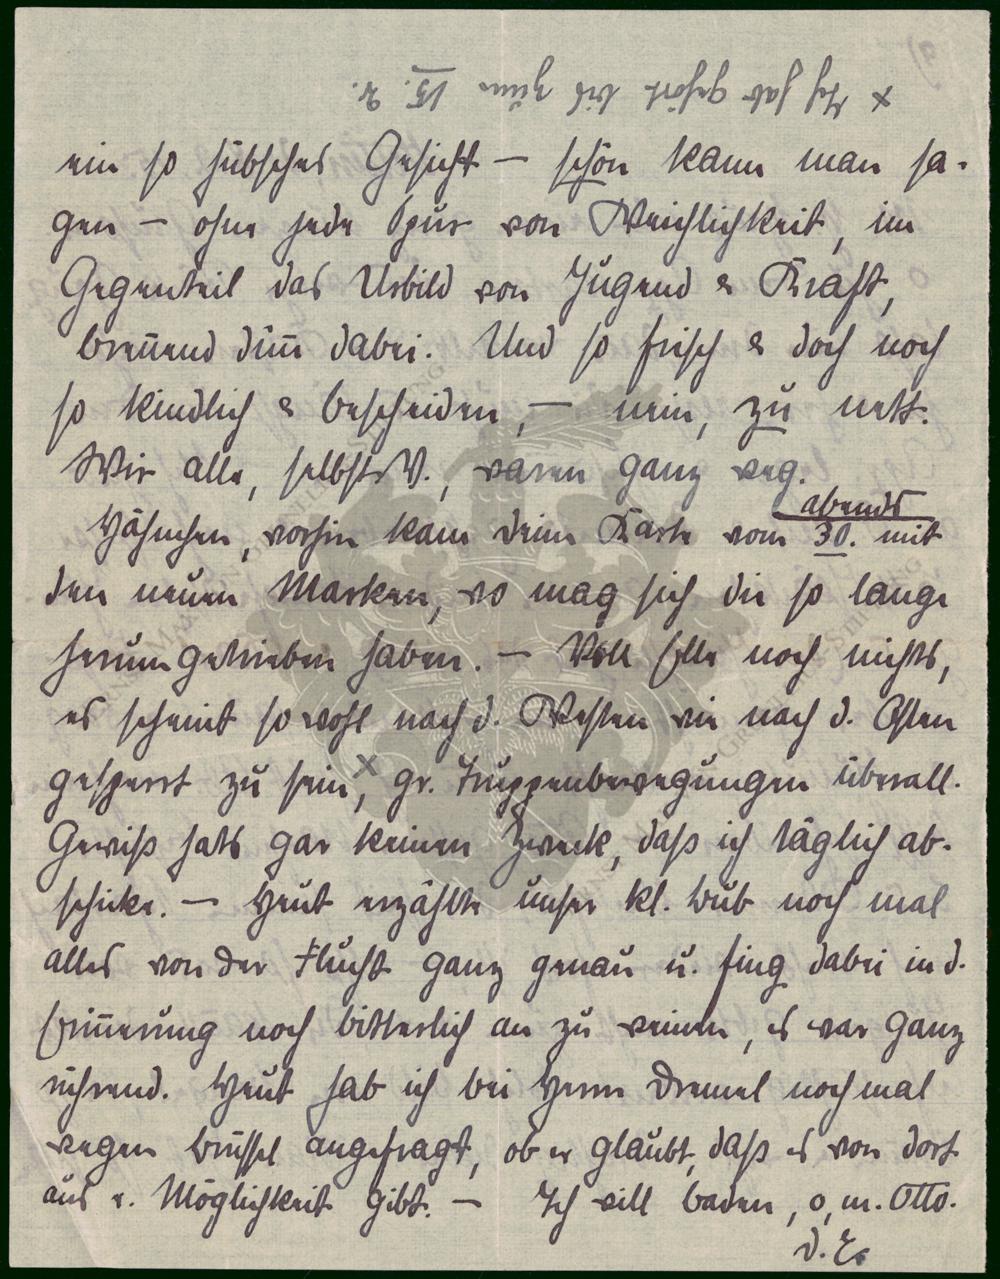 × Ich hab gehört bis zum 15. 2.
ein so hübsches Gesicht – schön kann man sa-
gen – ohne jede Spur von Weichlichkeit, im
Gegenteil das Urbild von Jugend & Kraft,
breñend düñ dabei. Und so frisch & doch noch
so kindlich & bescheiden, – nein, zu nett.
Wir alle, selbst W., waren ganz weg.
abends
Hähnchen, vorhin kam dein Karte vom 30. mit
den neuen Marken, wo mag sich die so lange
herumgetrieben haben. – Von Elle noch nichts,
es scheint sowohl nach d. Westen wie nach d. Osten
gesperrt zu sein ×, gr. Truppenbewegungen überall.
Gewiß hats gar keinen Zweck, daß ich täglich ab-
schicke. – Heut erzählte unser kl. Bub noch mal
alles von der Flucht ganz genau u. fing dabei in d.
Eriñerung noch bitterlich an zu weinen, es war ganz
rührend. Heut hab ich bei Herrn Dremel noch mal
wegen Brüssel angefragt, ob er glaubt, daß es von dort
aus e. Möglichkeit gibt. – Ich will baden, o, m. Otto.